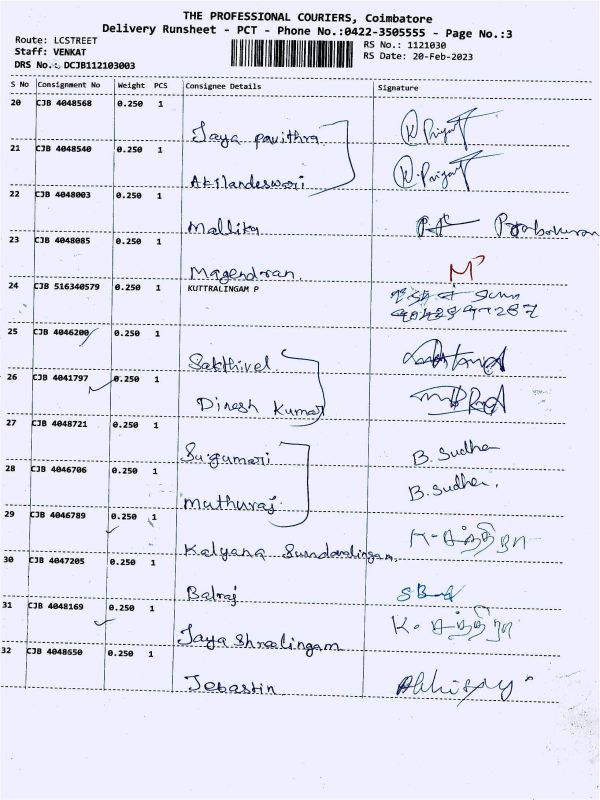 THE PROFESSIONAL COURIERS, Coimbatore
Delivery Runsheet - PCT - Phone No.:0422-3505555 - Page No.:3
Route: LCSTREET
Staff: VENKAT
DRS No.: DCJB112103003
RS No.: 1121030
RS Date: 20-Feb-2023
S No Consignment No Weight PCS Consignee Details Signature
20 CJB 4048568 0.250 1
Jaya pavithra
21 CJB 4048540 0.250 1
Akilandeswari
22 CJB 4048003 0.250 1
Mallika
23 CJB 4048085 0.250 1
Magendran.
24 CJB 516340579 0.250 1 KUTTRALINGAM P
25 CJB 4046200 0.250 1
Sakthivel
26 CJB 4041797 0.250 1
Dinesh Kumar
27 CJB 4048721 0.250 1
Sugumari B. Sudha
28 CJB 4046706 0.250 1 B. Sudha.
Muthuraj
29 CJB 4046789 0.250 1
Kalyana Sundaralingam.
30 CJB 4047205 0.250 1
Balraj
31 CJB 4048169 0.250 1
Jaya Shreelingam
32 CJB 4048650 0.250 1
Jebastin